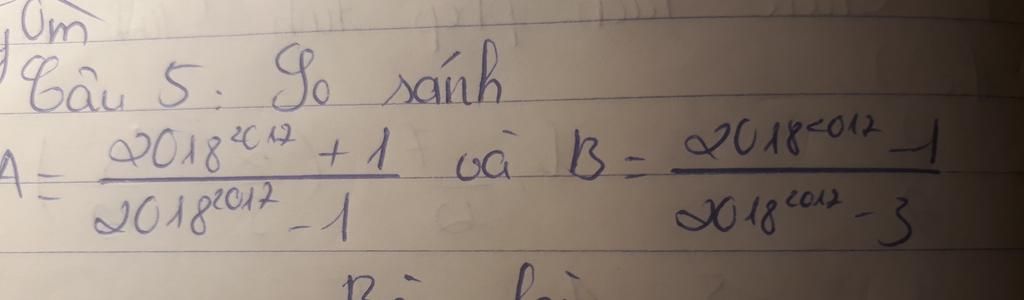 Om
Câu 5: So sánh
A = \frac{2018^{2017} + 1}{2018^{2017} - 1} và B = \frac{2018^{2017} - 1}{2018^{2017} - 3}